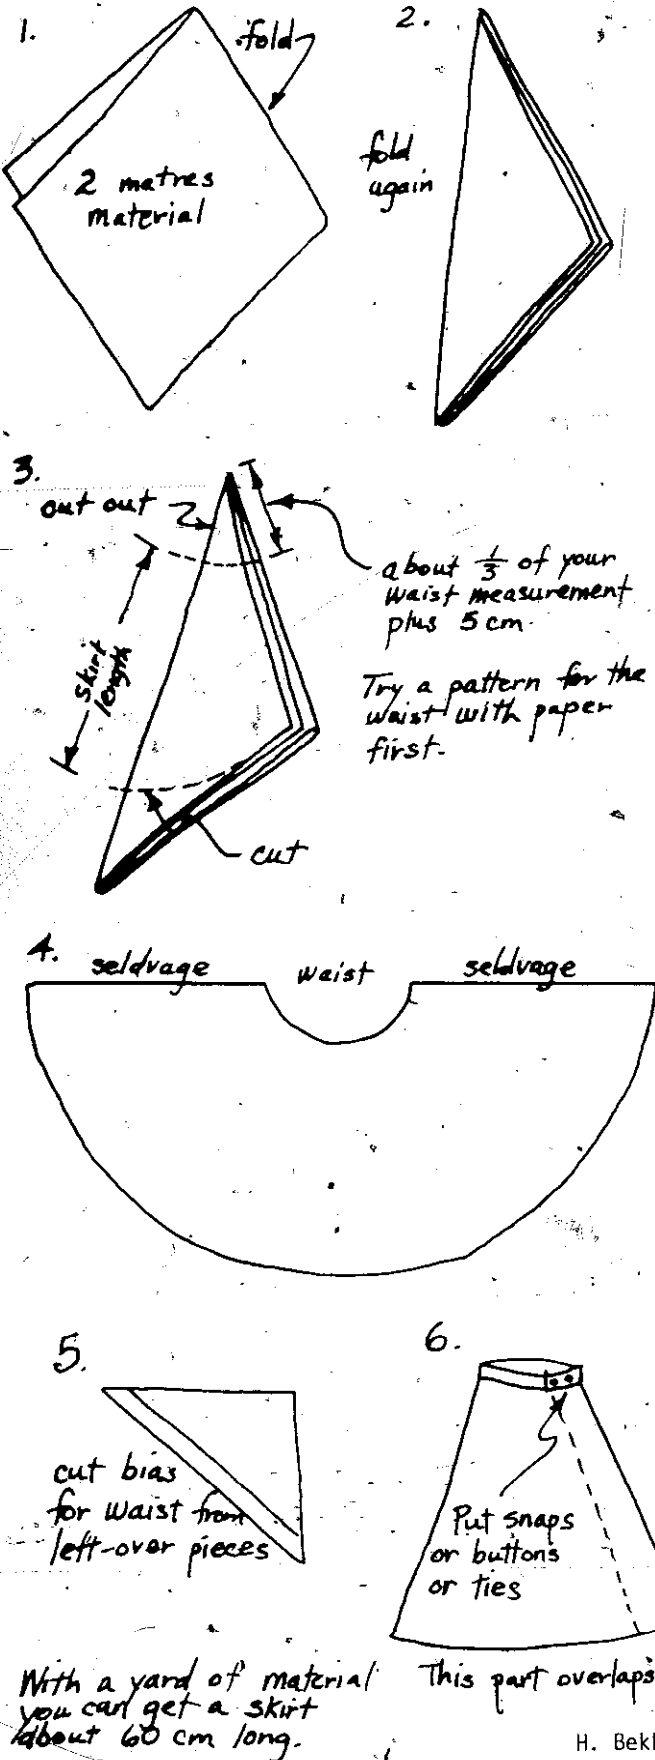 1.
fold
2 matres
material
2.
fold
again
3.
out out
about 1/3 of your
waist measurement
plus 5 cm.
skirt
length
Try a pattern for the
waist with paper
first.
cut
4.
seldvage waist seldvage
5.
cut bias
for waist from
left-over pieces
6.
Put snaps
or buttons
or ties
With a yard of material
you can get a skirt
about 60 cm long.
This part overlaps
H. Bekk